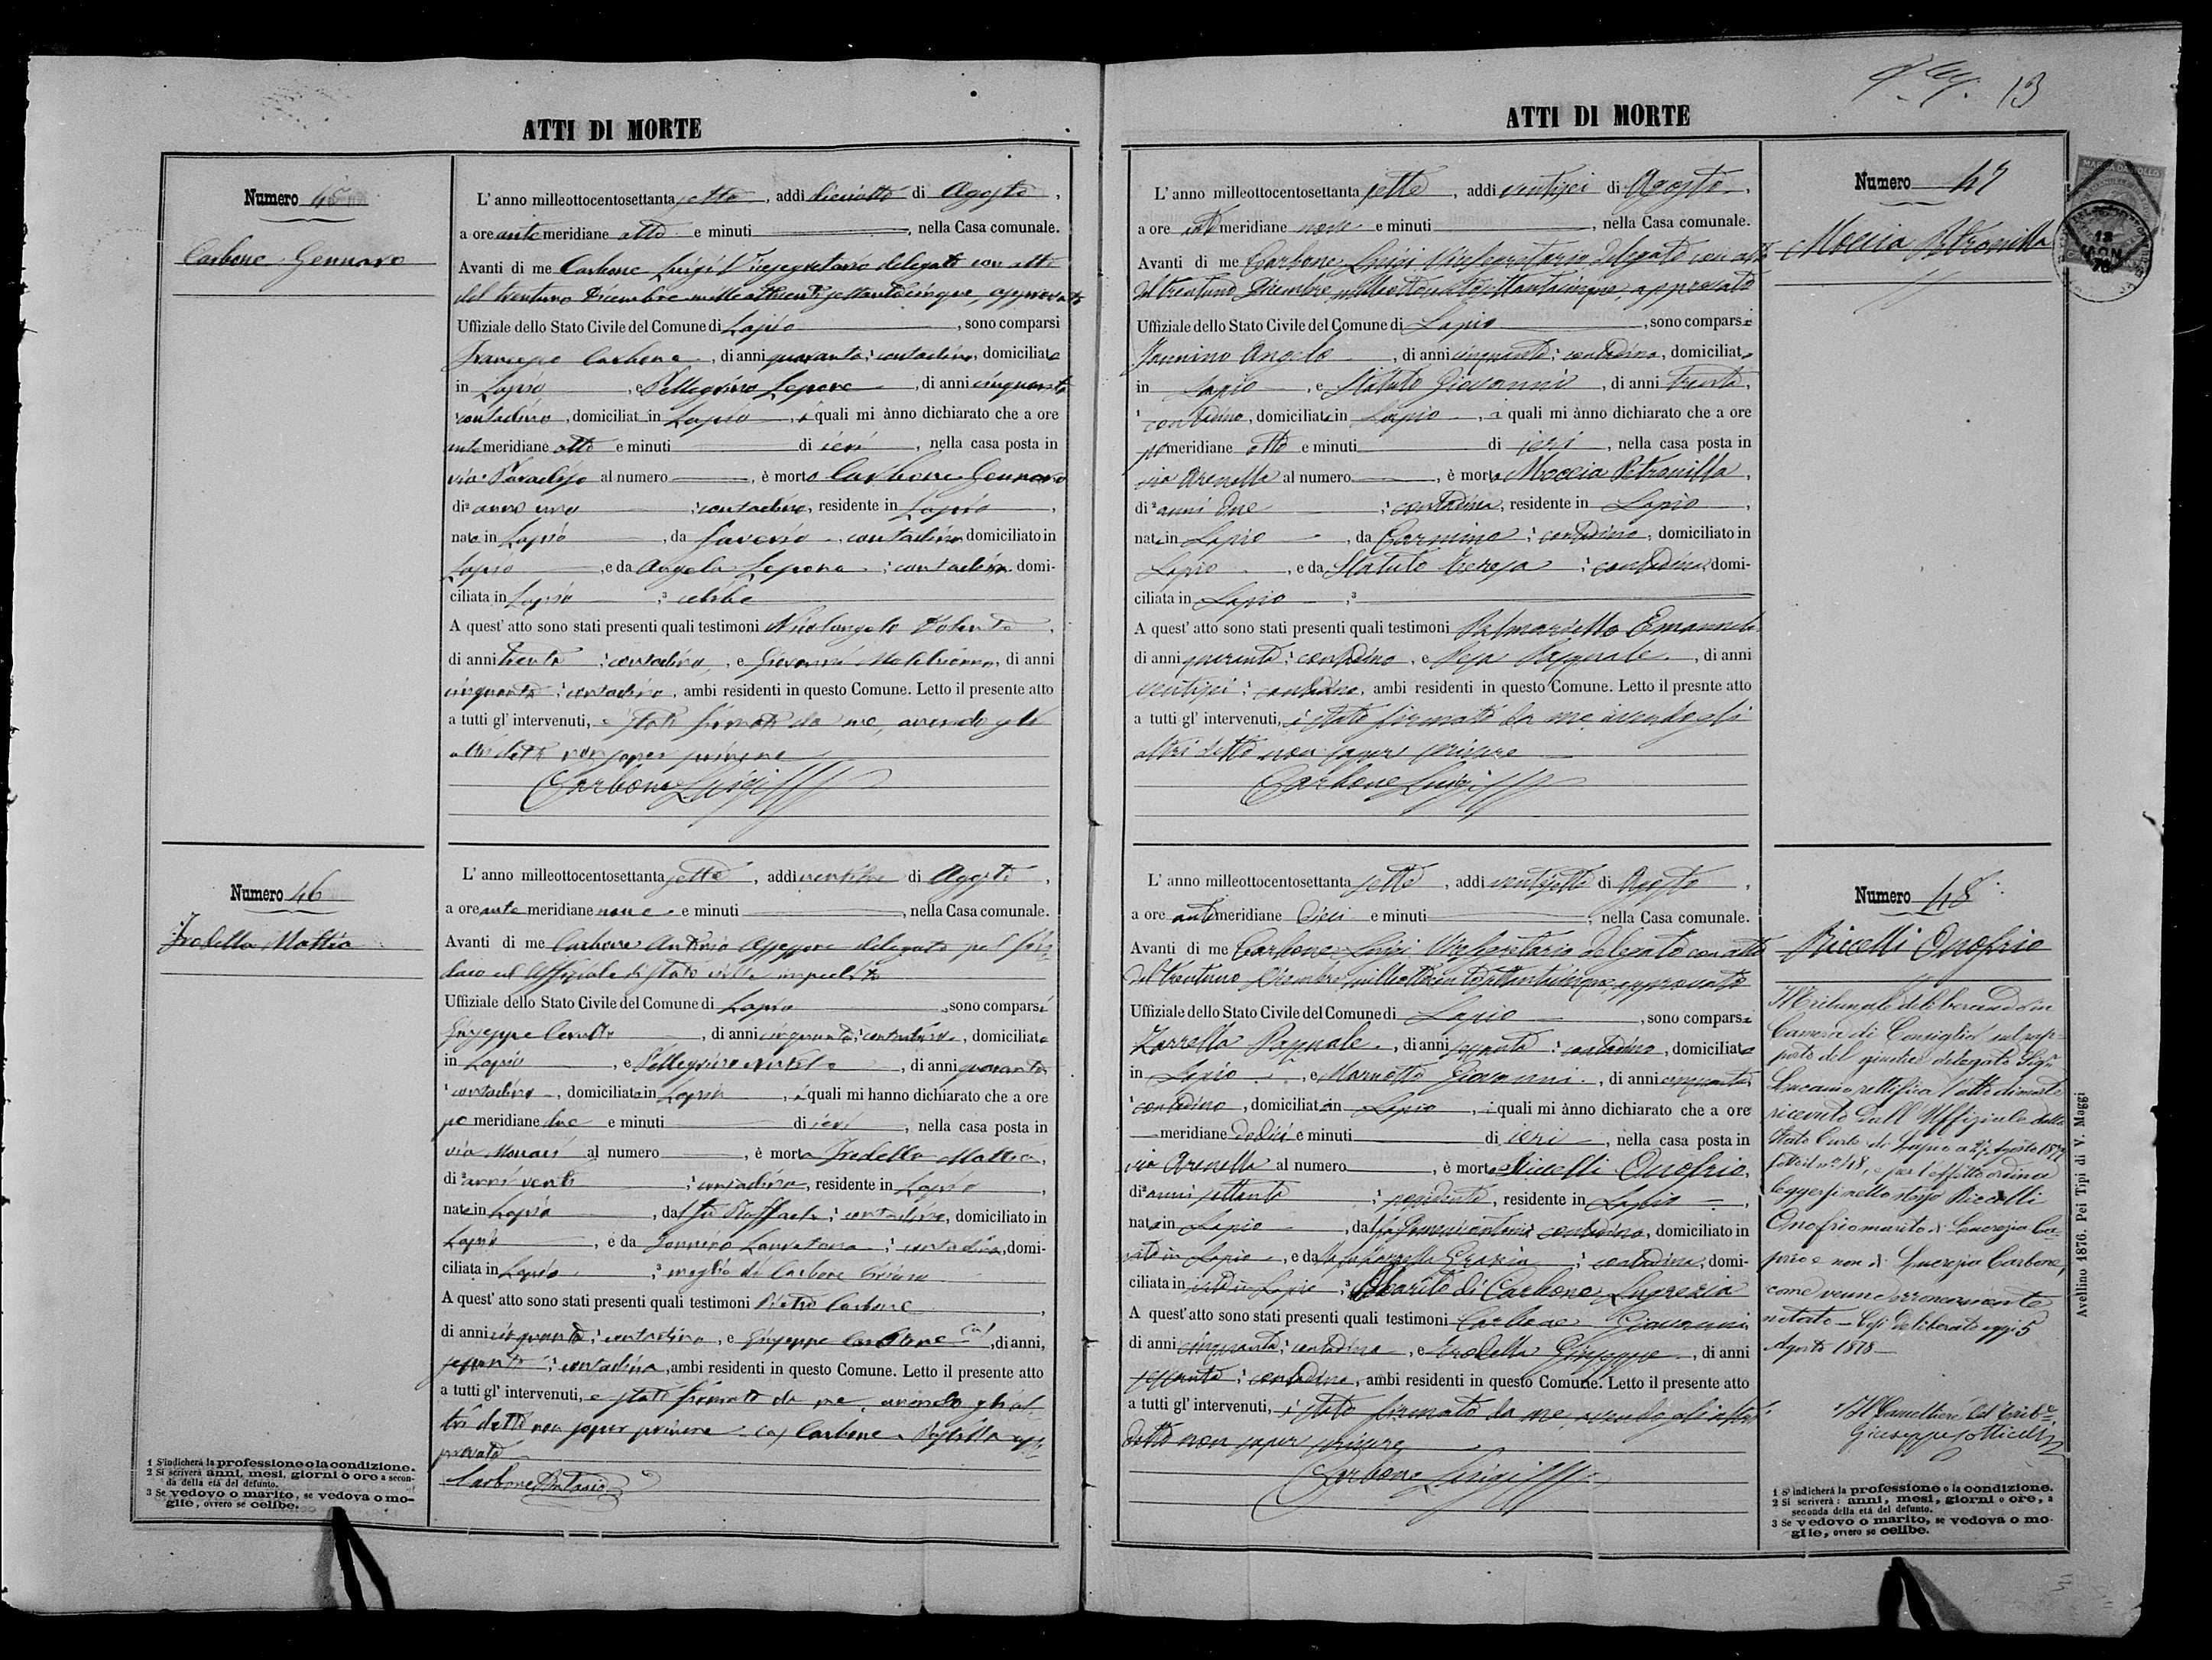 ATTI DI MORTE
Numero 45
Carbone Gennaro
L' anno milleottocentosettanta sette, addi dieciotto di Agosto,
a ore antemeridiane otto e minuti, nella Casa comunale.
Avanti di me Carbone Luigi Vicesegretario delegato con atto
del trentuno Dicembre milleottocentosettantacinque, approvato
Uffiziale dello Stato Civile del Comune di Lapio, sono comparsi
Francesco Carbone, di anni quaranta, contadino, domiciliato
in Lapio, e Pellegrino Lepore, di anni cinquanta
contadino, domiciliat in Lapio, i quali mi ànno dichiarato che a ore
antemeridiane otto e minuti di ieri, nella casa posta in
via Paradiso al numero, è morto Carbone Gennaro
di² anni uno ;¹ contadino, residente in Lapio,
nato in Lapio, da Saverio, contadino domiciliato in
Lapio, e da Angela Lepore ;¹ contadina domi-
ciliata in Lapio ;³ celibe
A quest' atto sono stati presenti quali testimoni Nicolangelo
di anni trenta ;¹ contadino, e Giovanni, di anni
cinquanta ;¹ contadino, ambi residenti in questo Comune. Letto il presente atto
a tutti gl' intervenuti, è stato firmato da me, avendo gli
altri detto non saper scrivere
Carbone Luigi
Numero 46
Trodella Mattia
L' anno milleottocentosettanta sette, addi ventitre di Agosto,
a ore antemeridiane nove e minuti, nella Casa comunale.
Avanti di me Carbone Antonio Assessore delegato pel Sin-
daco ed Uffiziale di Stato civile impedito
Uffiziale dello Stato Civile del Comune di Lapio, sono comparsi
Giuseppe, di anni cinquanta, contadino, domiciliato
in Lapio, e Pellegrino, di anni quaranta
¹ contadino, domiciliato in Lapio, i quali mi hanno dichiarato che a ore
pomeridiane due e minuti di ieri, nella casa posta in
via al numero, è morta Trodella Mattia,
di² anni venti ;¹ contadina, residente in Lapio,
nata in Lapio, da fu Raffaele ;¹ contadino, domiciliato in
Lapio, e da Iannino Lauretana ;¹ contadina, domi-
ciliata in Lapio ;³ moglie di Carbone Ciriaco
A quest' atto sono stati presenti quali testimoni Pietro Carbone,
di anni cinquanta ;¹ contadino, e Giuseppe Carbone, di anni,
sessanta ;¹ contadino, ambi residenti in questo Comune. Letto il presente atto
a tutti gl' intervenuti, è stato firmato da me, avendo gli al-
tri detto non saper scrivere Carbone Postilla ap-
provata
Carbone Antonio
1 S'indicherà la professione o la condizione.
2 Si scriverà anni, mesi, giorni o ore a secon-
da della età del defunto.
3 Se vedovo o marito, se vedova o mo-
glie, ovvero se celibe.
13
ATTI DI MORTE
Numero 47
Moccia Petronilla
L' anno milleottocentosettanta sette, addi ventisei di Agosto,
a ore antimeridiane nove e minuti, nella Casa comunale.
Avanti di me Carbone Luigi Vicesegretario delegato con atto
del trentuno Dicembre milleottocentosettantacinque, approvato
Uffiziale dello Stato Civile del Comune di Lapio, sono comparsi
Iannino Angelo, di anni cinquanta ;¹ contadino, domiciliato
in Lapio, e Statuto Giovanni, di anni trenta,
¹ contadino, domiciliato in Lapio, i quali mi ànno dichiarato che a ore
pomeridiane otto e minuti di ieri, nella casa posta in
via Arenella al numero, è morta Moccia Petronilla,
di² anni due ;¹ contadina, residente in Lapio,
nata in Lapio, da Carmine ;¹ contadino, domiciliato in
Lapio, e da Statuto Teresa ;¹ contadina, domi-
ciliata in Lapio ;³
A quest' atto sono stati presenti quali testimoni Palmariello Emanuele
di anni quaranta ;¹ contadino, e Pasquale, di anni
ventisei ;¹ contadino, ambi residenti in questo Comune. Letto il presnte atto
a tutti gl' intervenuti, è stato firmato da me avendo gli
altri detto non sapere scrivere
Carbone Luigi
MARCA DA BOLLO
Numero 48
Riccelli Onofrio
L' anno milleottocentosettanta sette, addi ventisette di Agosto,
a ore antimeridiane dieci e minuti, nella Casa comunale.
Avanti di me Carbone Luigi Vicesegretario delegato con atto
del trentuno Dicembre milleottocentosettantacinque, approvato
Uffiziale dello Stato Civile del Comune di Lapio, sono comparsi
Zarrella Pasquale, di anni sessanta ;¹ contadino, domiciliato
in Lapio, e Marnotto Giovanni, di anni cinquanta
¹ contadino, domiciliato in Lapio, i quali mi ànno dichiarato che a ore
meridiane dodici e minuti di ieri, nella casa posta in
via Arenella al numero, è morto Riccelli Onofrio,
di² anni settanta ;¹ possidente, residente in Lapio,
nato in Lapio, da fu contadino, domiciliato in
vita in Lapio, e da Grazia ;¹ contadina, domi-
ciliata in vita in Lapio ;³ Marito di Carbone Lugrezia
A quest' atto sono stati presenti quali testimoni Carbone Giovanni
di anni cinquanta ;¹ contadino, e Trodella Giuseppe, di anni
sessanta ;¹ contadino, ambi residenti in questo Comune. Letto il presente atto
a tutti gl' intervenuti, è stato firmato da me avendo gli altri
detto non saper scrivere
Carbone Luigi
Il Tribunale deliberando in
Camera di Consiglio sul rap-
porto del giudice delegato Sigr
Lucano rettifica l'atto di morte
ricevuto dall'Uffiziale dello
Stato Civile di Lapio a 27 Agosto 1877
sotto il nº 48, e per l'effetto ordina
leggersi nello stesso Riccelli
Onofrio marito di Lucrezia Ca-
e non di Lucrezia Carbone,
come venne erroneamente
notato - Così deliberato oggi 5
Agosto 1878
Il Cancelliere del Trible
Giuseppe
Avellino 1876. Pei Tipi di V. Maggi
1 S' indicherà la professione o la condizione.
2 Si scriverà: anni, mesi, giorni o ore, a
seconda della età del defunto.
3 Se vedovo o marito, se vedova o mo-
glie, ovvero se celibe.